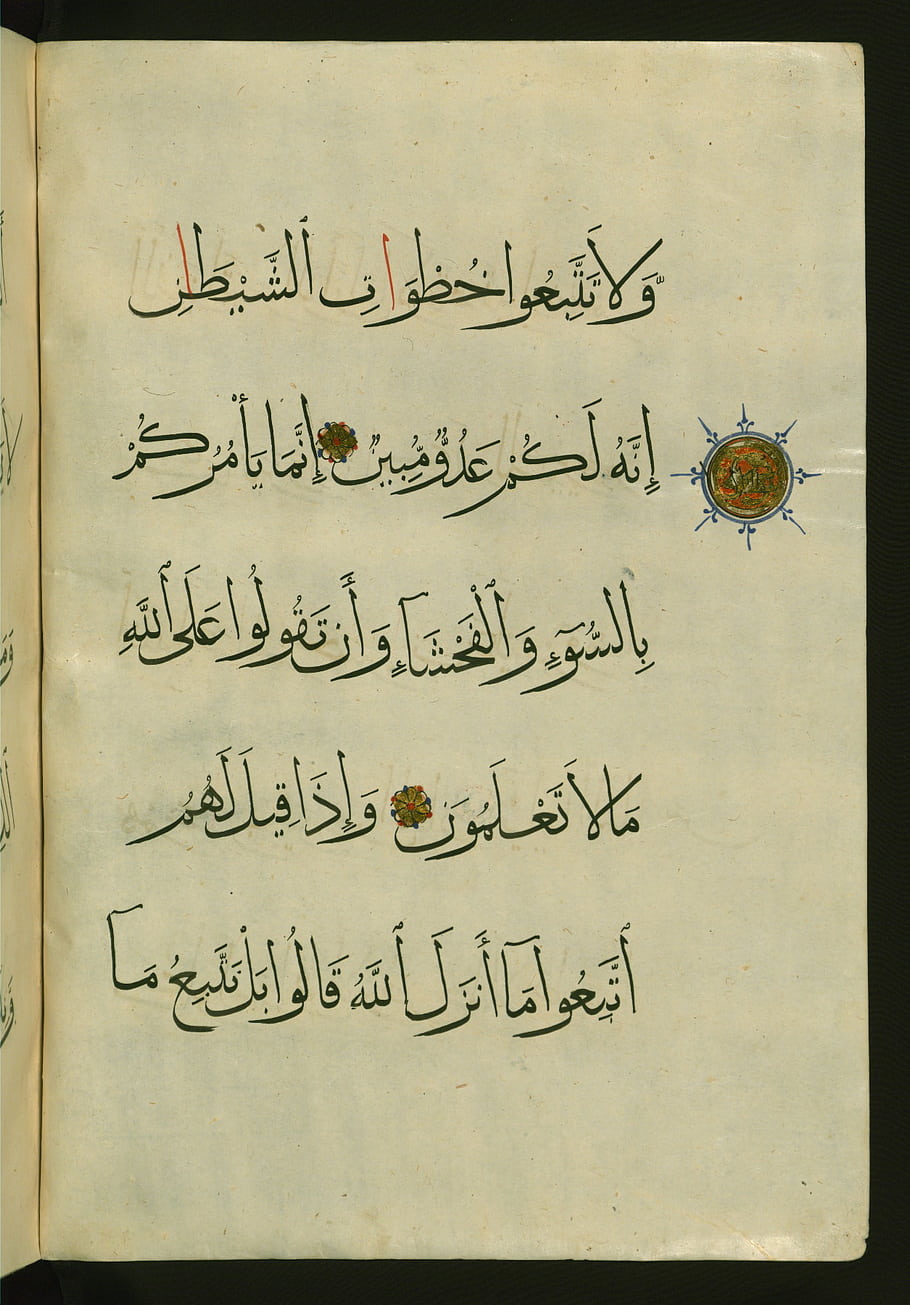 وَلَا تَتَّبِعُوا خُطُوَاتِ ٱلشَّيْطَانِ
إِنَّهُ لَكُمْ عَدُوٌّ مُّبِينٌ إِنَّمَا يَأْمُرُكُمْ
بِالسُّوٓءِ وَٱلْفَحْشَآءِ وَأَن تَقُولُوا عَلَى ٱللَّهِ
مَا لَا تَعْلَمُونَ وَإِذَا قِيلَ لَهُمُ
ٱتَّبِعُوا مَآ أَنزَلَ ٱللَّهُ قَالُوا بَلْ نَتَّبِعُ مَآ